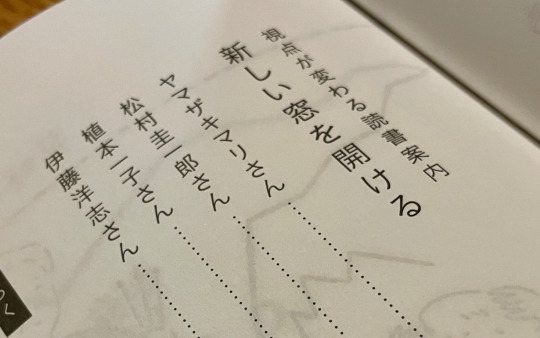 視点が変わる読書案内
新しい窓を開ける
ヤマザキマリさん
松村圭一郎さん
植本一子さん
伊藤洋志さん